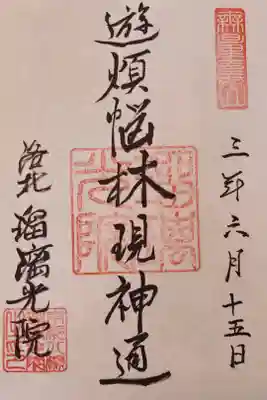 三年六月十五日
遊煩悩林現神通
洛北 瑠璃光院